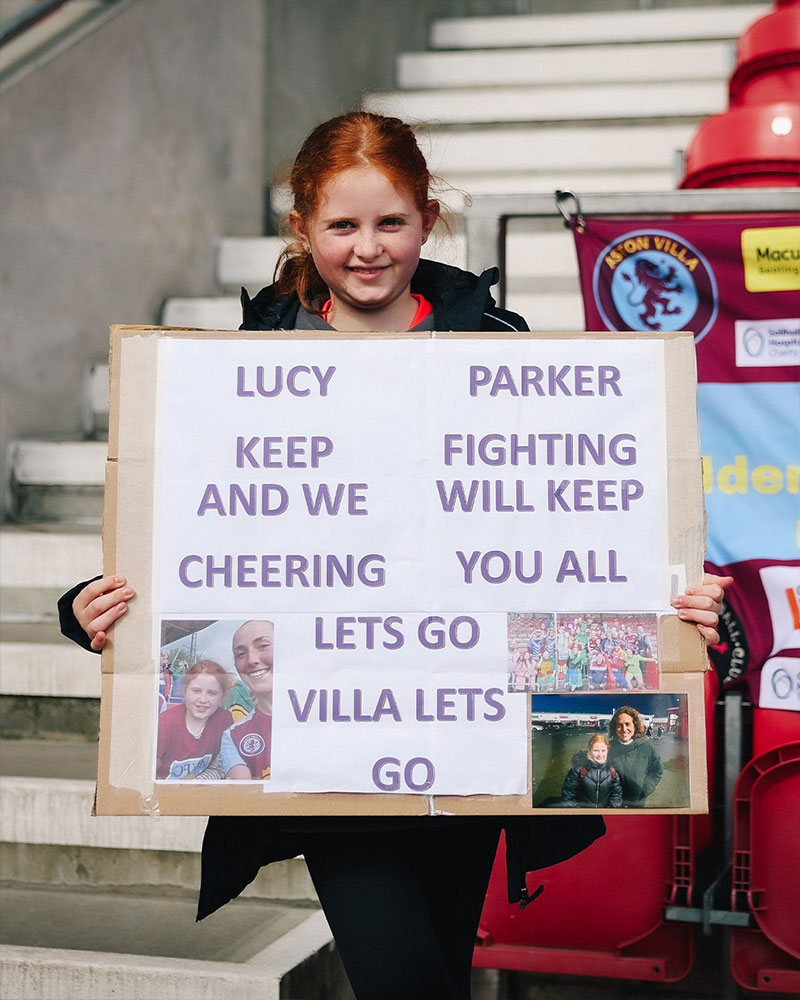 LUCY PARKER
KEEP FIGHTING
AND WE WILL KEEP
CHEERING YOU ALL
LETS GO
VILLA LETS
GO
ASTON VILLA
Solihull
Hospital
Charity